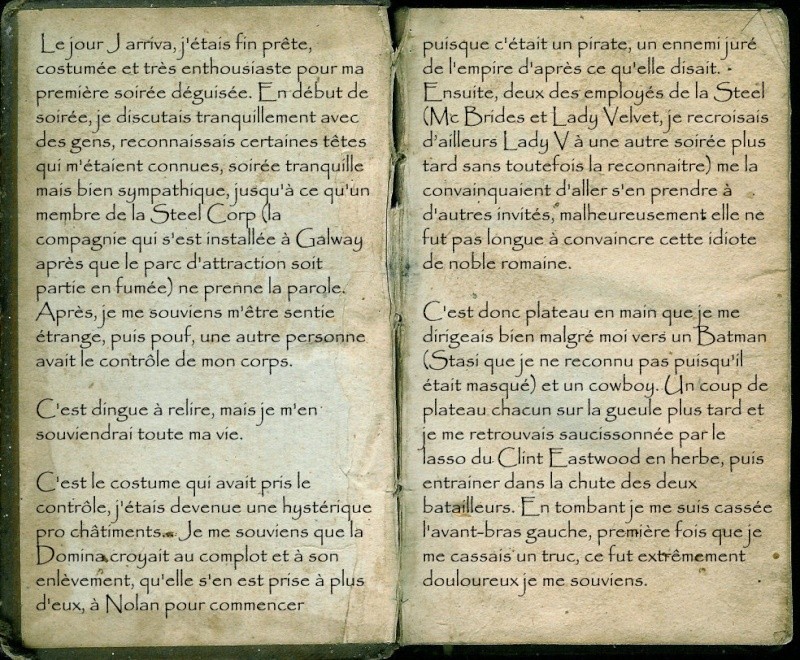 Le jour J arriva, j'étais fin prête,
costumée et très enthousiaste pour ma
première soirée déguisée. En début de
soirée, je discutais tranquillement avec
des gens, reconnaissais certaines têtes
qui m'étaient connues, soirée tranquille
mais bien sympathique, jusqu'à ce qu'un
membre de la Steel Corp (la
compagnie qui s'est installée à Galway
après que le parc d'attraction soit
partie en fumée) ne prenne la parole.
Après, je me souviens m'être sentie
étrange, puis pouf, une autre personne
avait le contrôle de mon corps.

C'est dingue à relire, mais je m'en
souviendrai toute ma vie.

C'est le costume qui avait pris le
contrôle, j'étais devenue une hystérique
pro châtiments... Je me souviens que la
Domina croyait au complot et à son
enlèvement, qu'elle s'en est prise à plus
d'eux, à Nolan pour commencer
puisque c'était un pirate, un ennemi juré
de l'empire d'après ce qu'elle disait.
Ensuite, deux des employés de la Steel
(Mc Brides et Lady Velvet, je recroisais
d'ailleurs Lady V à une autre soirée plus
tard sans toutefois la reconnaitre) me la
convainquaient d'aller s'en prendre à
d'autres invités, malheureusement elle ne
fut pas longue à convaincre cette idiote
de noble romaine.

C'est donc plateau en main que je me
dirigeais bien malgré moi vers un Batman
(Stasi que je ne reconnu pas puisqu'il
était masqué) et un cowboy. Un coup de
plateau chacun sur la gueule plus tard et
je me retrouvais saucissonnée par le
lasso du Clint Eastwood en herbe, puis
entrainer dans la chute des deux
batailleurs. En tombant je me suis cassée
l'avant-bras gauche, première fois que je
me cassais un truc, ce fut extrêmement
douloureux je me souviens.